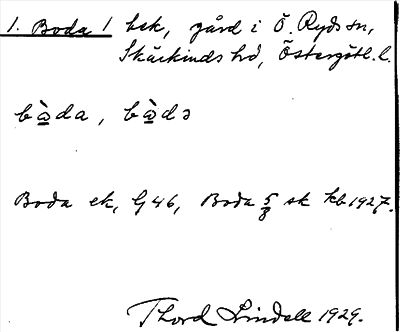 1. Boda / bsk, gård i Ö. Ryds sn,
Skärkinds hd, Östergötl. l.
bàda, bàdə
Boda ek, G 46, Boda sk kb 1927.
Thord Lindell 1929.